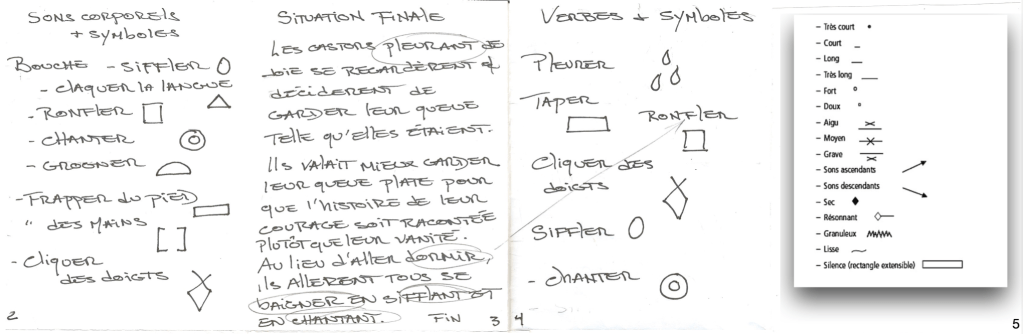 SONS CORPORELS
+ SYMBOLES
BOUCHE - SIFFLER
- CLAQUER LA LANGUE
- RONFLER
- CHANTER
- GROGNER
- FRAPPER DU PIED
" DES MAINS
- CLIQUER
DES DOIGTS
2
SITUATION FINALE
LES CASTORS PLEURANT DE
JOIE SE REGARDÈRENT &
DÉCIDERENT DE
GARDER LEUR QUEUE
TELLE QU'ELLES ÉTAIENT.
ILS VALAIT MIEUX GARDER
LEUR QUEUE PLATE POUR
QUE L'HISTOIRE DE LEUR
COURAGE SOIT RACONTÉE
PLUTÔT QUE LEUR VANITÉ.
AU LIEU D'ALLER DORMIR,
ILS ALLERENT TOUS SE
BAIGNER EN SIFFLANT ET
EN CHANTANT.
FIN
3
VERBES + SYMBOLES
PLEURER
TAPER
RONFLER
CLIQUER DES
DOIGTS
SIFFLER
- CHANTER
4
– Très court
– Court
– Long
– Très long
– Fort
– Doux
– Aigu
– Moyen
– Grave
– Sons ascendants
– Sons descendants
– Sec
– Résonnant
– Granuleux
– Lisse
– Silence (rectangle extensible)
5